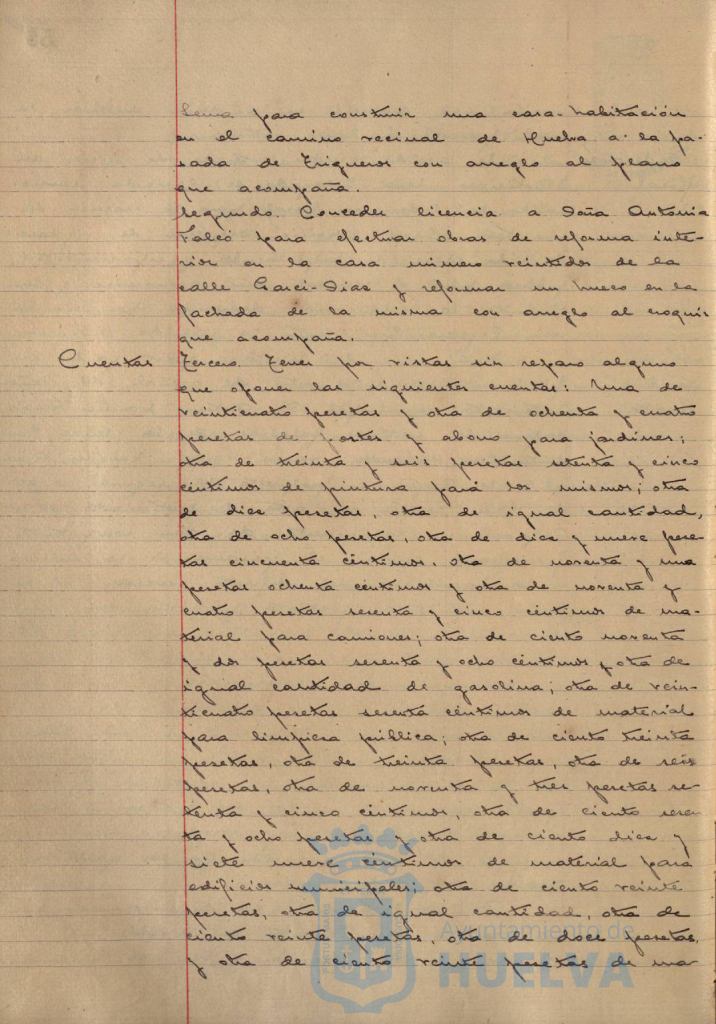 Lema para construir una casa-habitación
en el camino vecinal de Huelva a la pa-
sada de Trigueros con arreglo al plano
que acompaña.
Segundo. Conceder licencia a Doña Antonia
Falcó para efectuar obras de reforma inte-
rior en la casa número veintidos de la
calle Garci-Diaz y reformar un hueco en la
fachada de la misma con arreglo al croquis
que acompaña.
Cuentas Tercero. Tener por vistas sin reparo alguno
que oponer las siguientes cuentas: Una de
veinticuatro pesetas y otra de ochenta y cuatro
pesetas de portes y abono para jardines;
otra de treinta y seis pesetas setenta y cinco
céntimos de pintura para los mismos; otra
de diez pesetas, otra de igual cantidad,
otra de ocho pesetas, otra de diez y nueve pese-
tas cincuenta céntimos, otra de noventa y una
pesetas ochenta céntimos y otra de noventa y
cuatro pesetas sesenta y cinco céntimos de ma-
terial para camiones; otra de ciento noventa
y dos pesetas sesenta y ocho céntimos y otra de
igual cantidad de gasolina; otra de vein-
ticuatro pesetas sesenta céntimos de material
para limpieza pública; otra de ciento treinta
pesetas, otra de treinta pesetas, otra de seis
pesetas, otra de noventa y tres pesetas se-
tenta y cinco céntimos, otra de ciento sesen-
ta y ocho pesetas y otra de ciento diez y
siete nueve céntimos de material para
edificios municipales; otra de ciento veinte
pesetas, otra de igual cantidad, otra de
ciento veinte pesetas, otra de doce pesetas,
y otra de ciento veinte pesetas de ma-
Ayuntamiento de
HUELVA